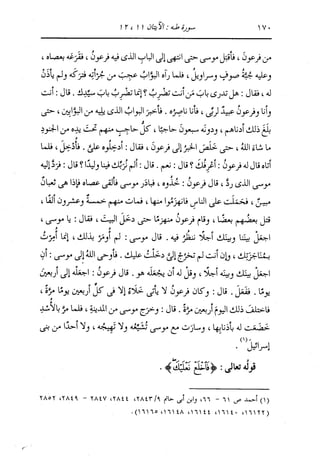 ١٧٠ سورة طه : الآيتان ١١ ، ١٢
من فرعونَ ، فأقبَل موسى حتى انتهى إلى البابِ الذى فيه فرعونُ ، فقرَعه بعصاه ،
وعليه جُبةُ صوفٍ وسراويلُ ، فلما رآه البوَّابُ عجِب من جُرْأتِه فترَكه ولم يأذَنْ
له ، فقال : هل تدرى بابَ مَن أنت تضرِبُ ؟ إنما تضرِبُ بابَ سيِّدِك . قال : أنت
وأنا وفرعونُ عبيدٌ لربى ، فأنا ناصرُه . فأخبَر البوابُ الذى يليه من البوَّابين ، حتى
بلَغ ذلك أدناهم ، ودونَه سبعون حاجبًا ، كلُّ حاجبٍ منهم تحتَ يدِه من الجنودِ
ما شاءَ اللهُ ، حتى خلَص الخبرُ إلى فرعونَ ، فقال : أدخِلُوه علىَّ . فأُدخِل ، فلما
أتاه قال له فرعونُ : أعرِفُك ؟ قال : نعم . قال : ألم نُرَبِّك فينا وليدًا ؟ قال : فردَّ إليه
موسى الذى ردَّ ، قال فرعونُ : خُذُوه . فبادَر موسى فألقَى عصاه فإذا هى ثعبانٌ
مبينٌ ، فحمَلت على الناسِ فانهزَموا منها ، فمات منهم خمسةٌ وعشرون ألفًا ،
قتَل بعضُهم بعضًا ، وقام فرعونُ منهزمًا حتى دخَل البيتَ ، فقال : يا موسى ،
اجعَلْ بيننا وبينَك أجلًا ننظُرُ فيه . قال موسى : لم أُومَرْ بذلك ، إنما أُمِرْتُ
بمُناجَزتِك ، وإن أنت لم تخرُجْ إلىَّ دخَلتُ عليك . فأوحَى اللهُ إلى موسى : أن
اجعَلْ بينَك وبينَه أجلًا ، وقلْ له أن يجعَلَه هو . قال فرعونُ : اجعَلْه إلى أربعين
يومًا . ففعَل . قال : وكان فرعونُ لا يأتى الخلاءَ إلا فى كلِّ أربعين يومًا مرَّةً ،
فاختلَف ذلك اليومَ أربعين مرَّةً . قال : وخرَج موسى من المدينةِ ، فلما مرَّ بالأُسْدِ
خضَعت له بأذنابِها ، وسارَت مع موسى تُشَيِّعُه ولا تَهِيجُه ، ولا أحدًا من بنى
إسرائيلَ(١) .
قولُه تعالى : ﴿ فَاخْلَعْ نَعْلَيْكَ ﴾ .
(١) أحمد ص ٦١ - ٦٦، وابن أبى حاتم ٩/ ٢٨٤٣، ٢٨٤٤، ٢٨٤٧ - ٢٨٤٩، ٢٨٥٢
(١٦١٢٢، ١٦١٤٠، ١٦١٤٤، ١٦١٤٨، ١٦١٦٥) .